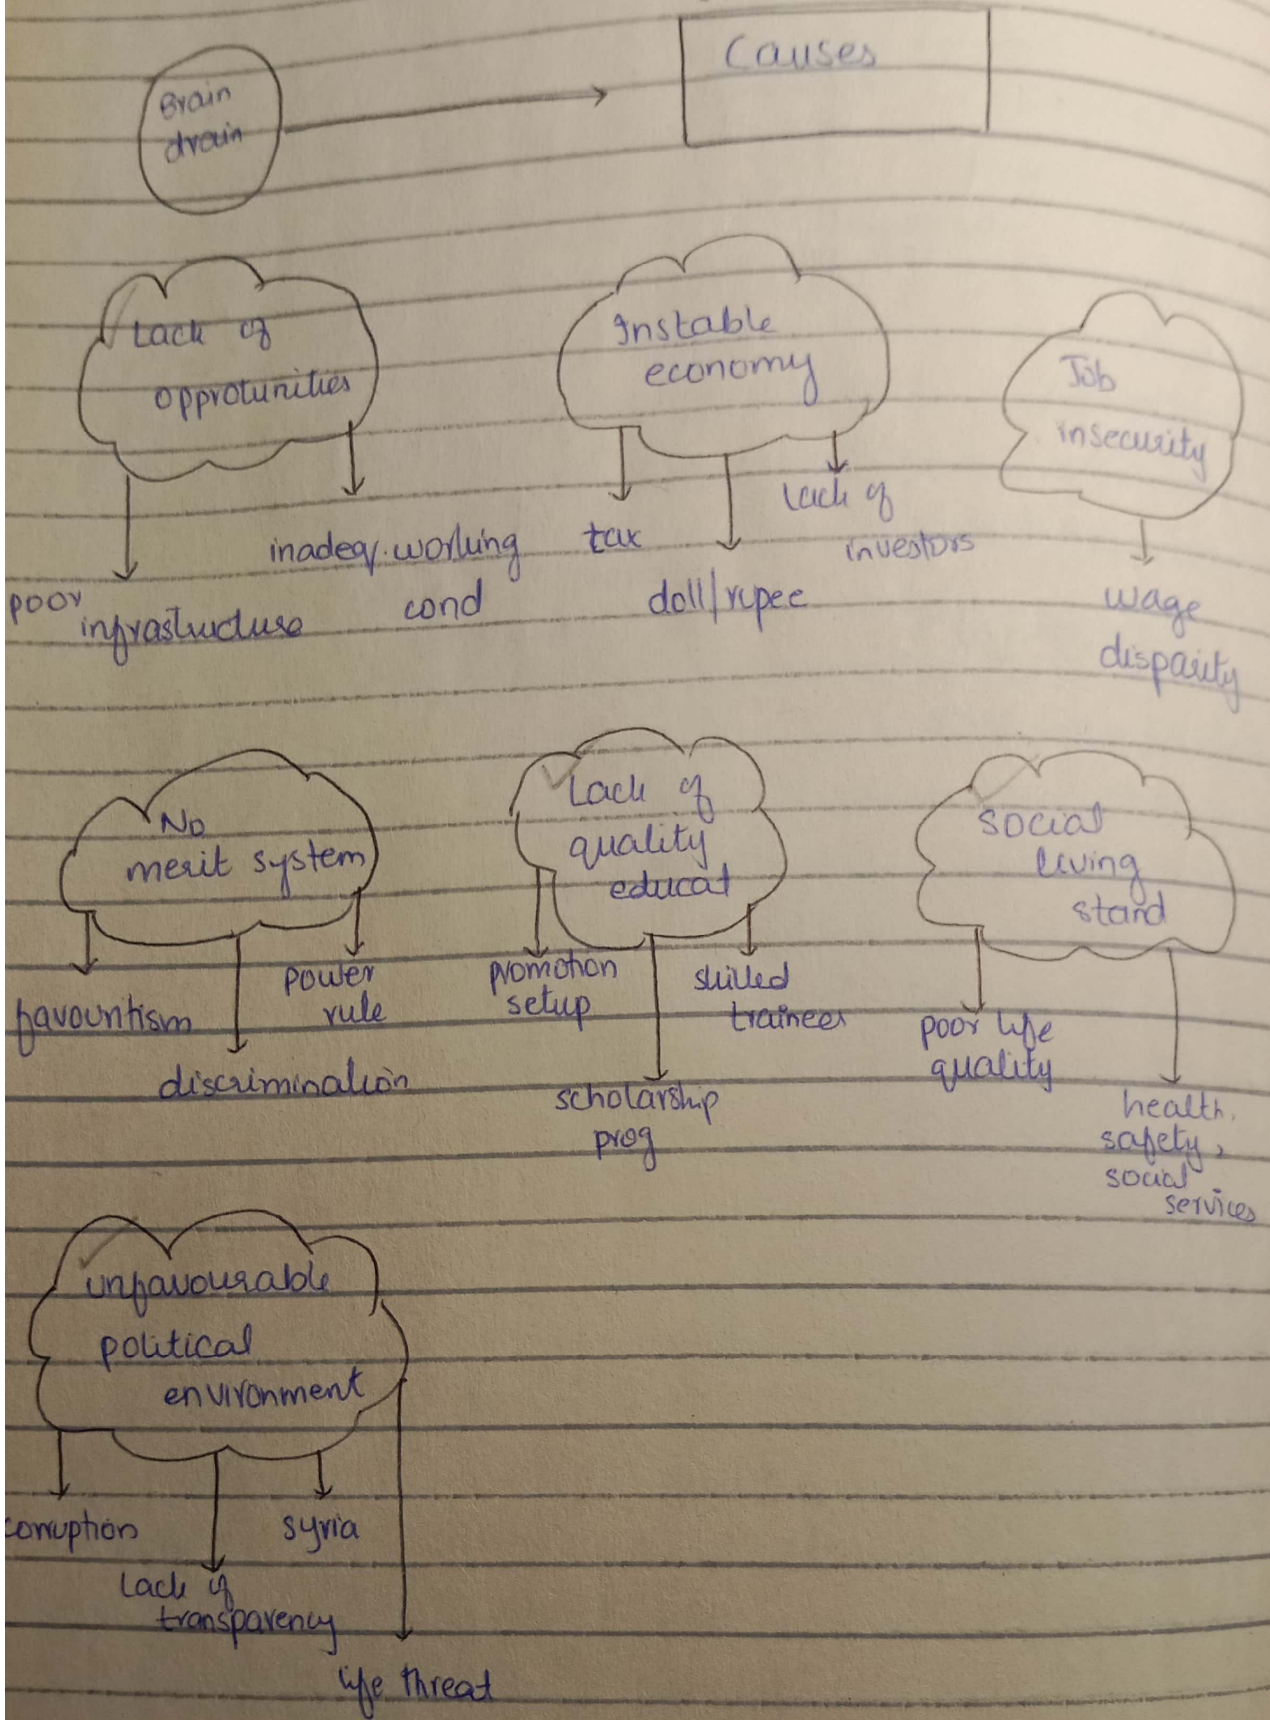 Brain
drain
Causes
Lack of
opprotunities
poor
infrastructure
inadeq. working
cond
Instable
economy
tax
doll/rupee
Lack of
investors
Job
insecurity
wage
disparity
No
merit system
favouritism
discrimination
power
rule
Lack of
quality
educat
promotion
setup
scholarship
prog
skilled
trainees
social
living
stand
poor life
quality
health,
safety,
social
services
unfavourable
political
environment
corruption
Lack of
transparency
syria
life threat